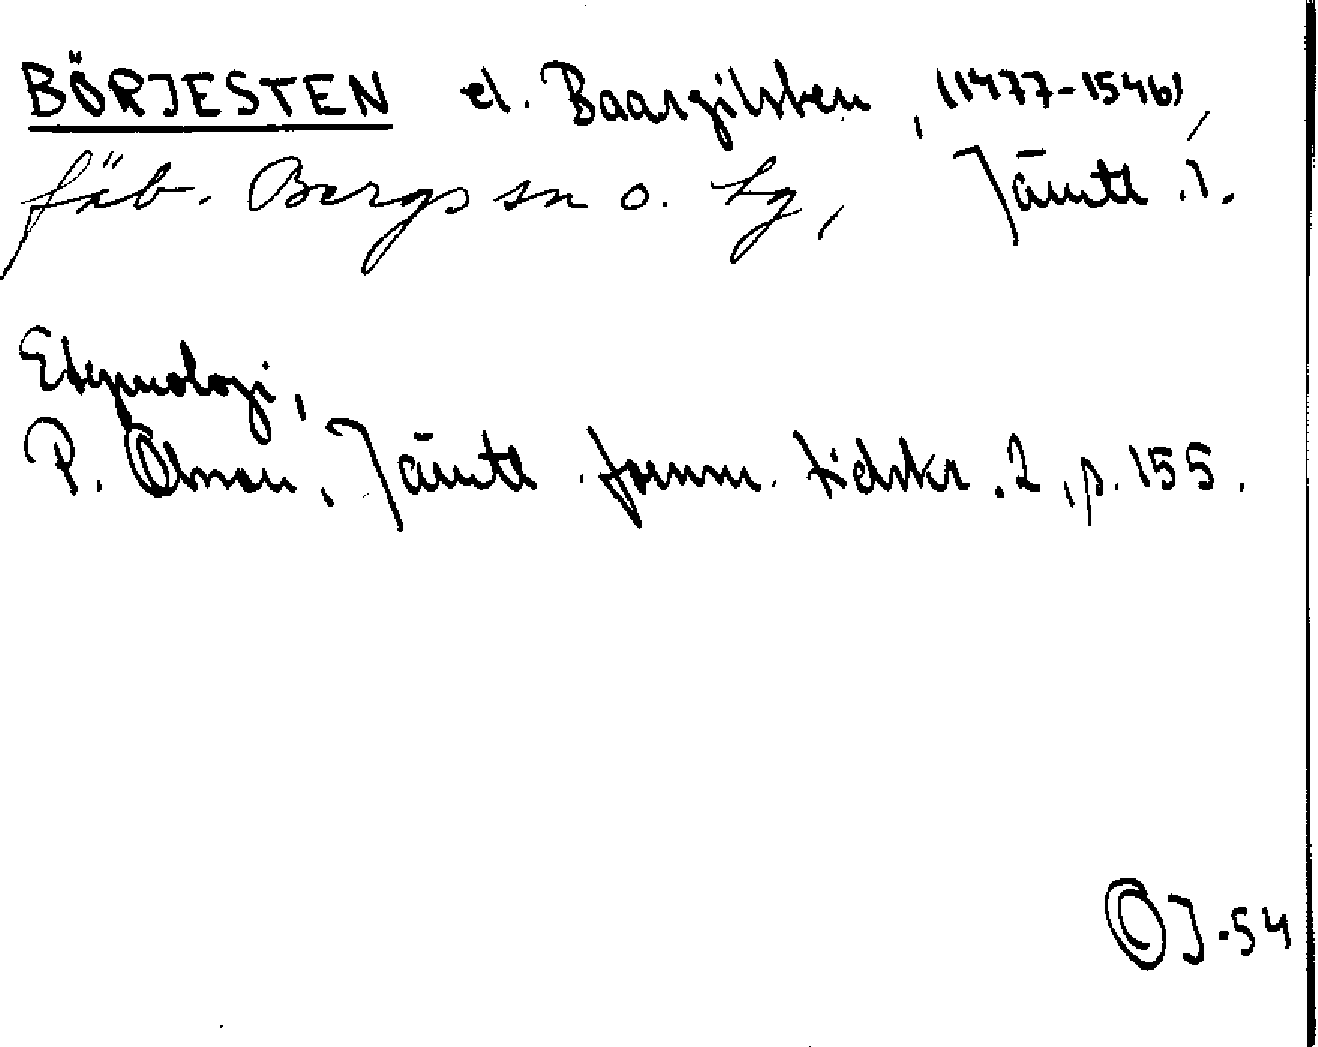 BÖRJESTEN el. Baargilsten, (1477-1546),
fäb. Bergs sn o. tg, Jämtl.l.
Etymologi,
P. Olsson, Jämtl. fornm. tidskr. 2, p. 155.
OJ-54